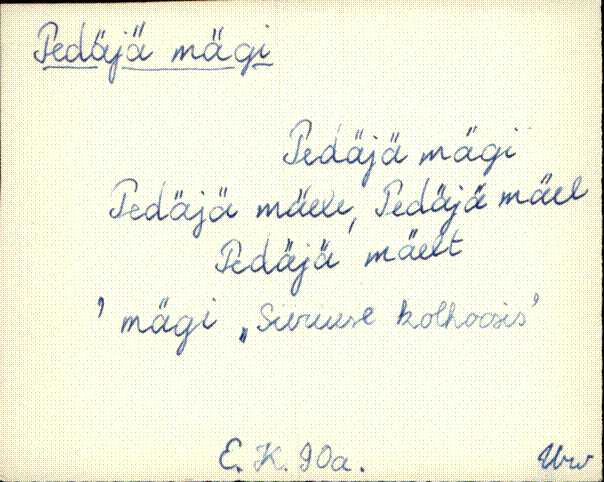 Pedäjä mägi
Pedäjä mägi
Pedäjä mäele, Pedäjä mäel
Pedäjä mäelt
' mägi „Suruuse kolhoosis'
E. K. 90a.
Urv